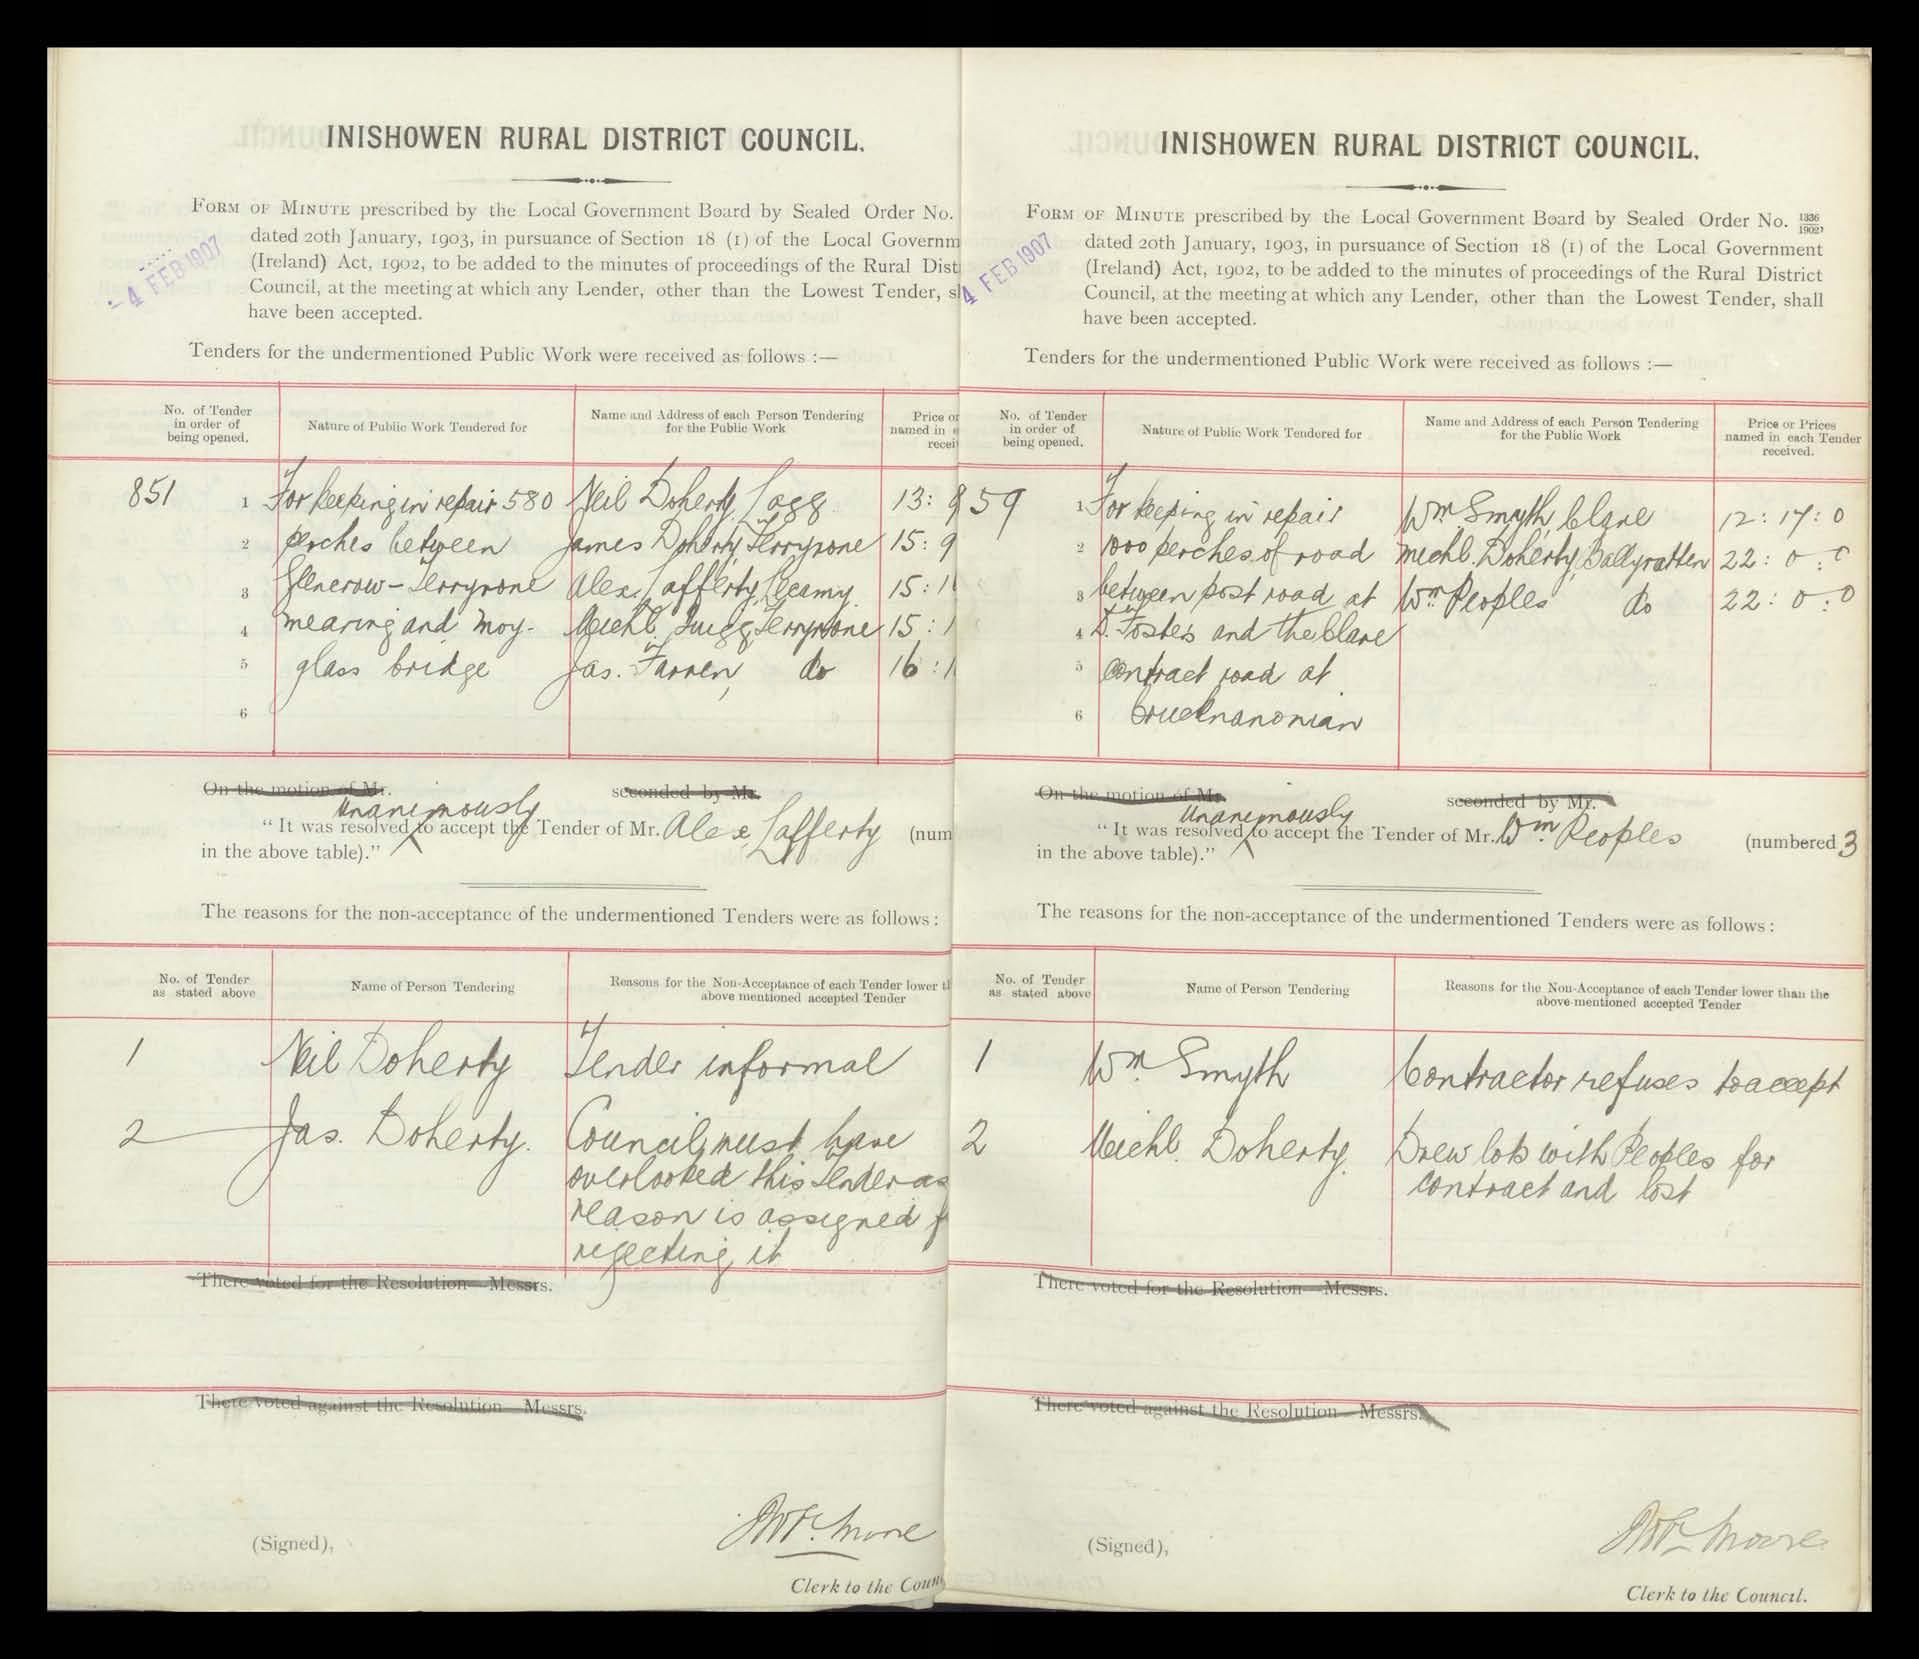 INISHOWEN RURAL DISTRICT COUNCIL.
FORM OF MINUTE prescribed by the Local Government Board by Sealed Order No.
dated 20th January, 1903, in pursuance of Section 18 (1) of the Local Governm
(Ireland) Act, 1902, to be added to the minutes of proceedings of the Rural Dist
Council, at the meeting at which any Lender, other than the Lowest Tender, s
have been accepted.
- 4 FEB 1907
Tenders for the undermentioned Public Work were received as follows :—
No. of Tender in order of being opened.
Nature of Public Work Tendered for
Name and Address of each Person Tendering for the Public Work
Price or named in recei
851 1 For keeping in repair 580 Neil Doherty, Lagg 13: 9
2 perches between James Doherty, Terryrone 15: 9
3 Glencrow - Terryrone Alex. Lafferty, Leeamy 15: 1
4 mearing and Moy- Michl. Quigg, Terryrone 15: 1
5 glass bridge Jas. Farren, do 16: 1
6
On the motion of Mr. seconded by Mr.
Unanimously
"It was resolved to accept the Tender of Mr. Alex. Lafferty (num
in the above table)."
The reasons for the non-acceptance of the undermentioned Tenders were as follows:
No. of Tender as stated above
Name of Person Tendering
Reasons for the Non-Acceptance of each Tender lower t
above mentioned accepted Tender
1 Neil Doherty Tender informal
2 Jas. Doherty. Council must have
overlooked this Tender as
reason is assigned f
rejecting it
There voted for the Resolution—Messrs.
There voted against the Resolution—Messrs.
(Signed),
Moore
Clerk to the Coun
INISHOWEN RURAL DISTRICT COUNCIL.
FORM OF MINUTE prescribed by the Local Government Board by Sealed Order No. 1336/1902,
dated 20th January, 1903, in pursuance of Section 18 (1) of the Local Government
(Ireland) Act, 1902, to be added to the minutes of proceedings of the Rural District
Council, at the meeting at which any Lender, other than the Lowest Tender, shall
have been accepted.
4 FEB 1907
Tenders for the undermentioned Public Work were received as follows :—
No. of Tender in order of being opened.
Nature of Public Work Tendered for
Name and Address of each Person Tendering for the Public Work
Price or Prices named in each Tender received.
59 1 For keeping in repair Wm. Smyth, Clare 12: 17: 0
2 1000 perches of road Michl. Doherty, Ballyratten 22: 0: 0
3 between post road at Wm. Peoples do 22: 0: 0
4 D. Foster's and the Clare
5 contract road at
6 Crucknanonian
On the motion of Mr. seconded by Mr.
Unanimously
"It was resolved to accept the Tender of Mr. Wm. Peoples (numbered 3
in the above table)."
The reasons for the non-acceptance of the undermentioned Tenders were as follows:
No. of Tender as stated above
Name of Person Tendering
Reasons for the Non-Acceptance of each Tender lower than the
above-mentioned accepted Tender
1 Wm. Smyth Contractor refuses to accept
2 Michl. Doherty. Drew lots with Peoples for
contract and lost
There voted for the Resolution—Messrs.
There voted against the Resolution—Messrs.
(Signed),
Moore
Clerk to the Council.